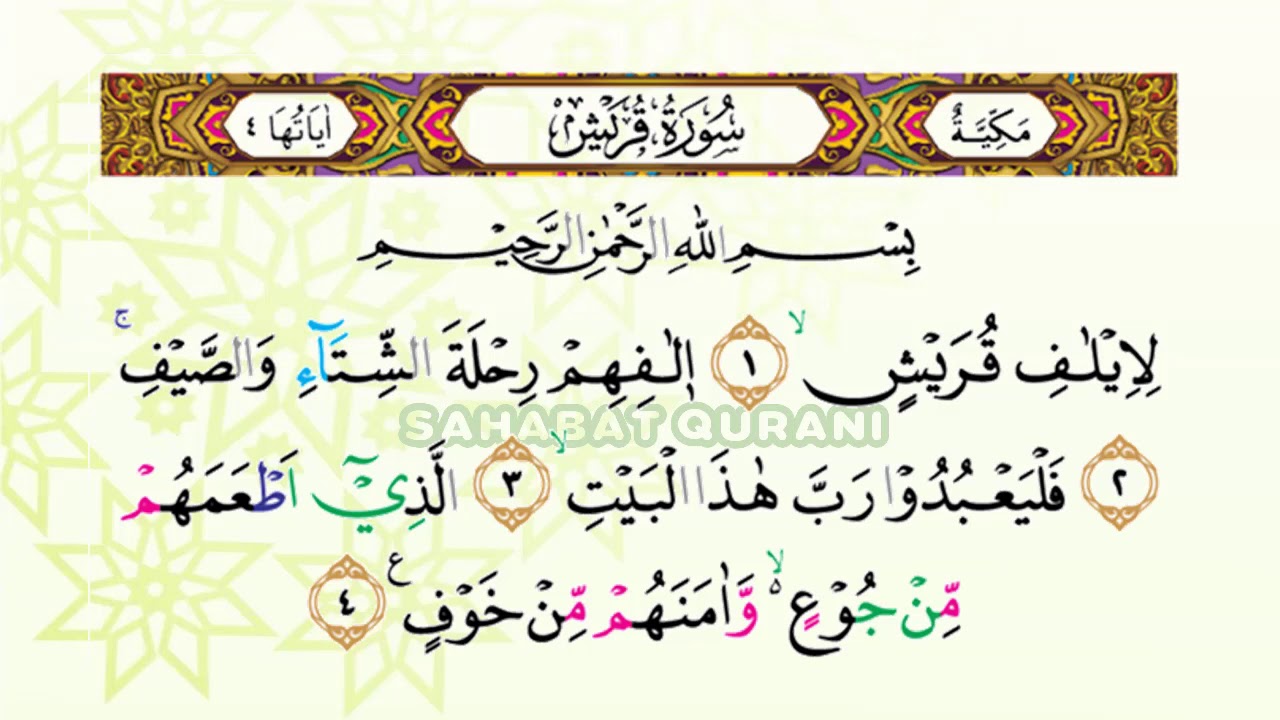 مَكِّيَّةٌ سُورَةُ قُرَيْشٍ اٰيَاتُهَا ٤
بِسْمِ اللّٰهِ الرَّحْمٰنِ الرَّحِيْمِ
لِاِيْلٰفِ قُرَيْشٍۙ ١ اٖلٰفِهِمْ رِحْلَةَ الشِّتَاۤءِ وَالصَّيْفِۚ
SAHABAT QURANI
٢ فَلْيَعْبُدُوْا رَبَّ هٰذَا الْبَيْتِۙ ٣ الَّذِيْٓ اَطْعَمَهُمْ
مِّنْ جُوْعٍ ەۙ وَّاٰمَنَهُمْ مِّنْ خَوْفٍ ࣖ ٤